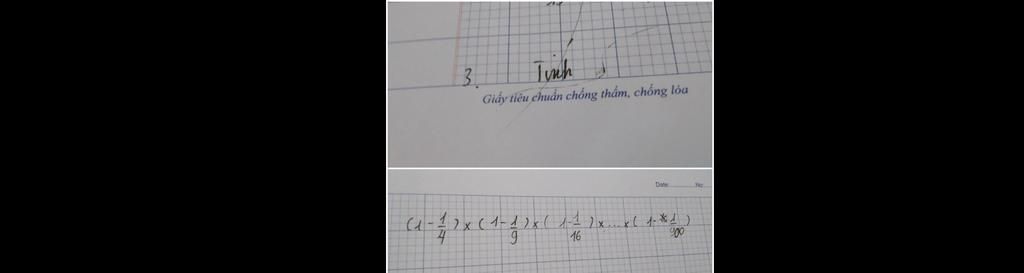 3. Tính
Giấy tiêu chuẩn chống thấm, chống lóa
Date: No:
(1 - 1/4) x (1 - 1/9) x (1 - 1/16) x ... x (1 - 1/900)